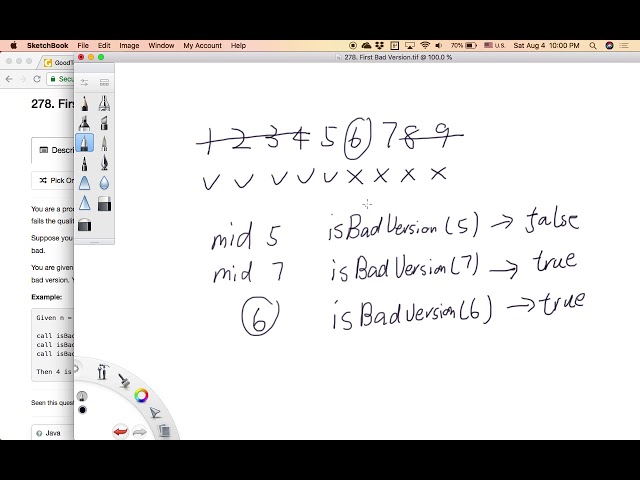 SketchBook File Edit Image Window My Account Help 70% U.S. Sat Aug 4 10:00 PM
278. First Bad Version.tif @ 100.0 %
GoodT
Secu
278. Firs
Descri
Pick On
You are a pro
fails the qualit
Suppose you
bad.
You are given
bad version. Y
Example:
Given n =
call isBad
call isBa
call isBa
Then 4 is
Seen this quest
Java
1 2 3 4 5 6 7 8 9
✓ ✓ ✓ ✓ ✓ × × × ×
mid 5 isBadVersion(5) → false
mid 7 isBadVersion(7) → true
6 isBadVersion(6) → true